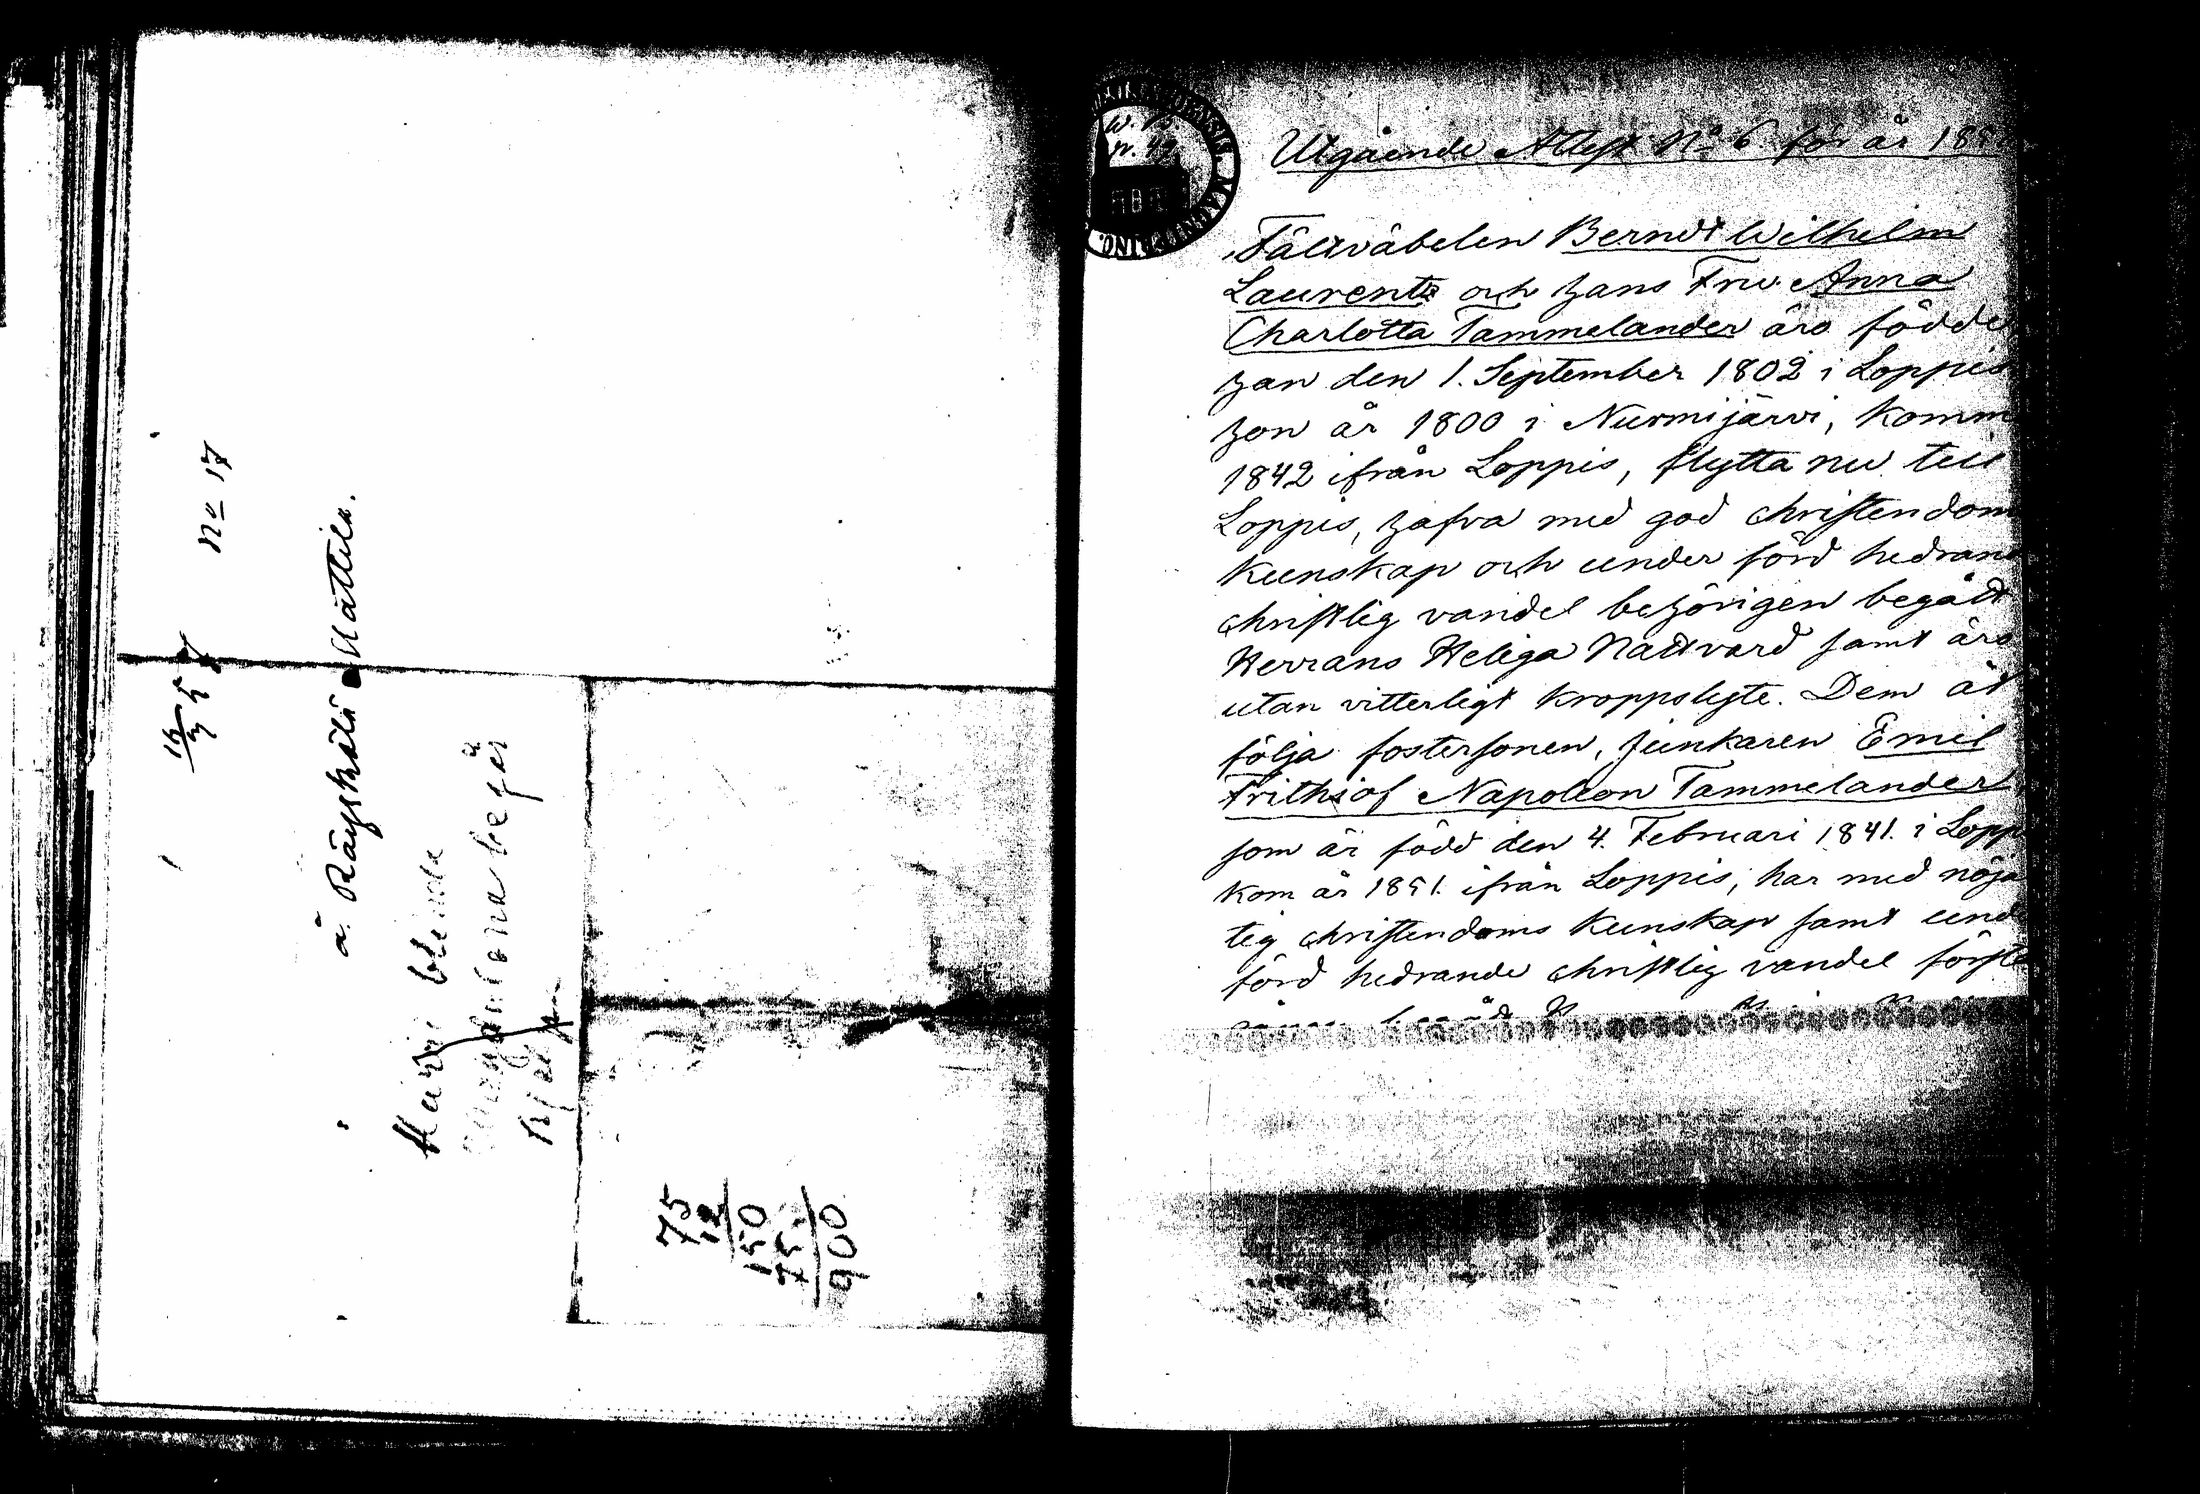 No 17
16/7 57
à Räyskälä Mattila.
75
12
150
75
900
Utgående Attest No 6. för år 185
Fältväbelen Berndt Wilhelm
Laurentz och hans Fru Anna
Charlotta Tammelander äro födde
han den 1. September 1802 i Loppis
hon år 1800 i Nurmijärvi, komm
1842 ifrån Loppis, flytta nu till
Loppis, hafva med god christendom
kunskap och under förd hedrand
christlig vandel behörigen begådt
Herrans Heliga Nattvard samt äro
utan vitterligt kroppslyte. Dem åt
följa fostersonen, junkaren Emil
Frithiof Napoleon Tammelander
som är född den 4. Februari 1841. i Lopp
kom år 1851. ifrån Loppis, har med nöja
tig christendoms kunskap samt und
förd hedrande christlig vandel förste